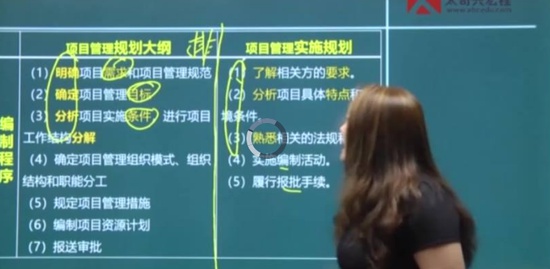 项目管理规划大纲
项目管理实施规划
编制程序
(1) 明确项目需求和项目管理规范
(2) 确定项目管理目标
(3) 分析项目实施条件，进行项目
工作结构分解
(4) 确定项目管理组织模式、组织
结构和职能分工
(5) 规定项目管理措施
(6) 编制项目资源计划
(7) 报送审批
(1) 了解相关方的要求。
(2) 分析项目具体特点和
境条件。
(3) 熟悉相关的法规和
(4) 实施编制活动。
(5) 履行报批手续。